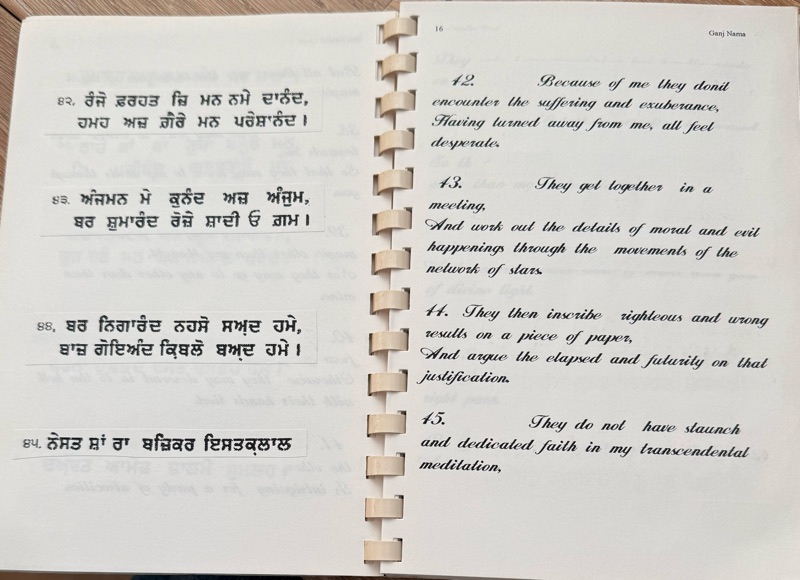 ੪੨. ਰੰਜੋ ਫ਼ਰਹਤ ਜ਼ਿ ਮਨ ਨਮੇ ਦਾਨੰਦ,
ਹਮਹ ਅਜ਼ ਗ਼ੈਰੇ ਮਨ ਪਰੇਸ਼ਾਨੰਦ।
੪੩. ਅੰਜਮਨ ਮੇ ਕੁਨੰਦ ਅਜ਼ ਅੰਜੁਮ,
ਬਰ ਸ਼ੁਮਾਰੰਦ ਰੋਜ਼ੇ ਸ਼ਾਦੀ ਓ ਗ਼ਮ।
੪੪. ਬਰ ਨਿਗਾਰੰਦ ਨਹਸੋ ਸਅ੍ਦ ਹਮੇ,
ਬਾਜ਼ ਗੋਇਅੰਦ ਕਿਬਲੋ ਬਅ੍ਦ ਹਮੇ।
੪੫. ਨੇਸਤ ਸ਼ਾਂ ਰਾ ਬਜ਼ਿਕਰ ਇਸਤਕ੍ਲਾਲ
16
Ganj Nama
42. Because of me they donit
encounter the suffering and exuberance,
Having turned away from me, all feel
desperate.
43. They get together in a
meeting,
And work out the details of moral and evil
happenings through the movements of the
network of stars.
44. They then inscribe righteous and wrong
results on a piece of paper,
And argue the elapsed and futurity on that
justification.
45. They do not have staunch
and dedicated faith in my transcendental
meditation,